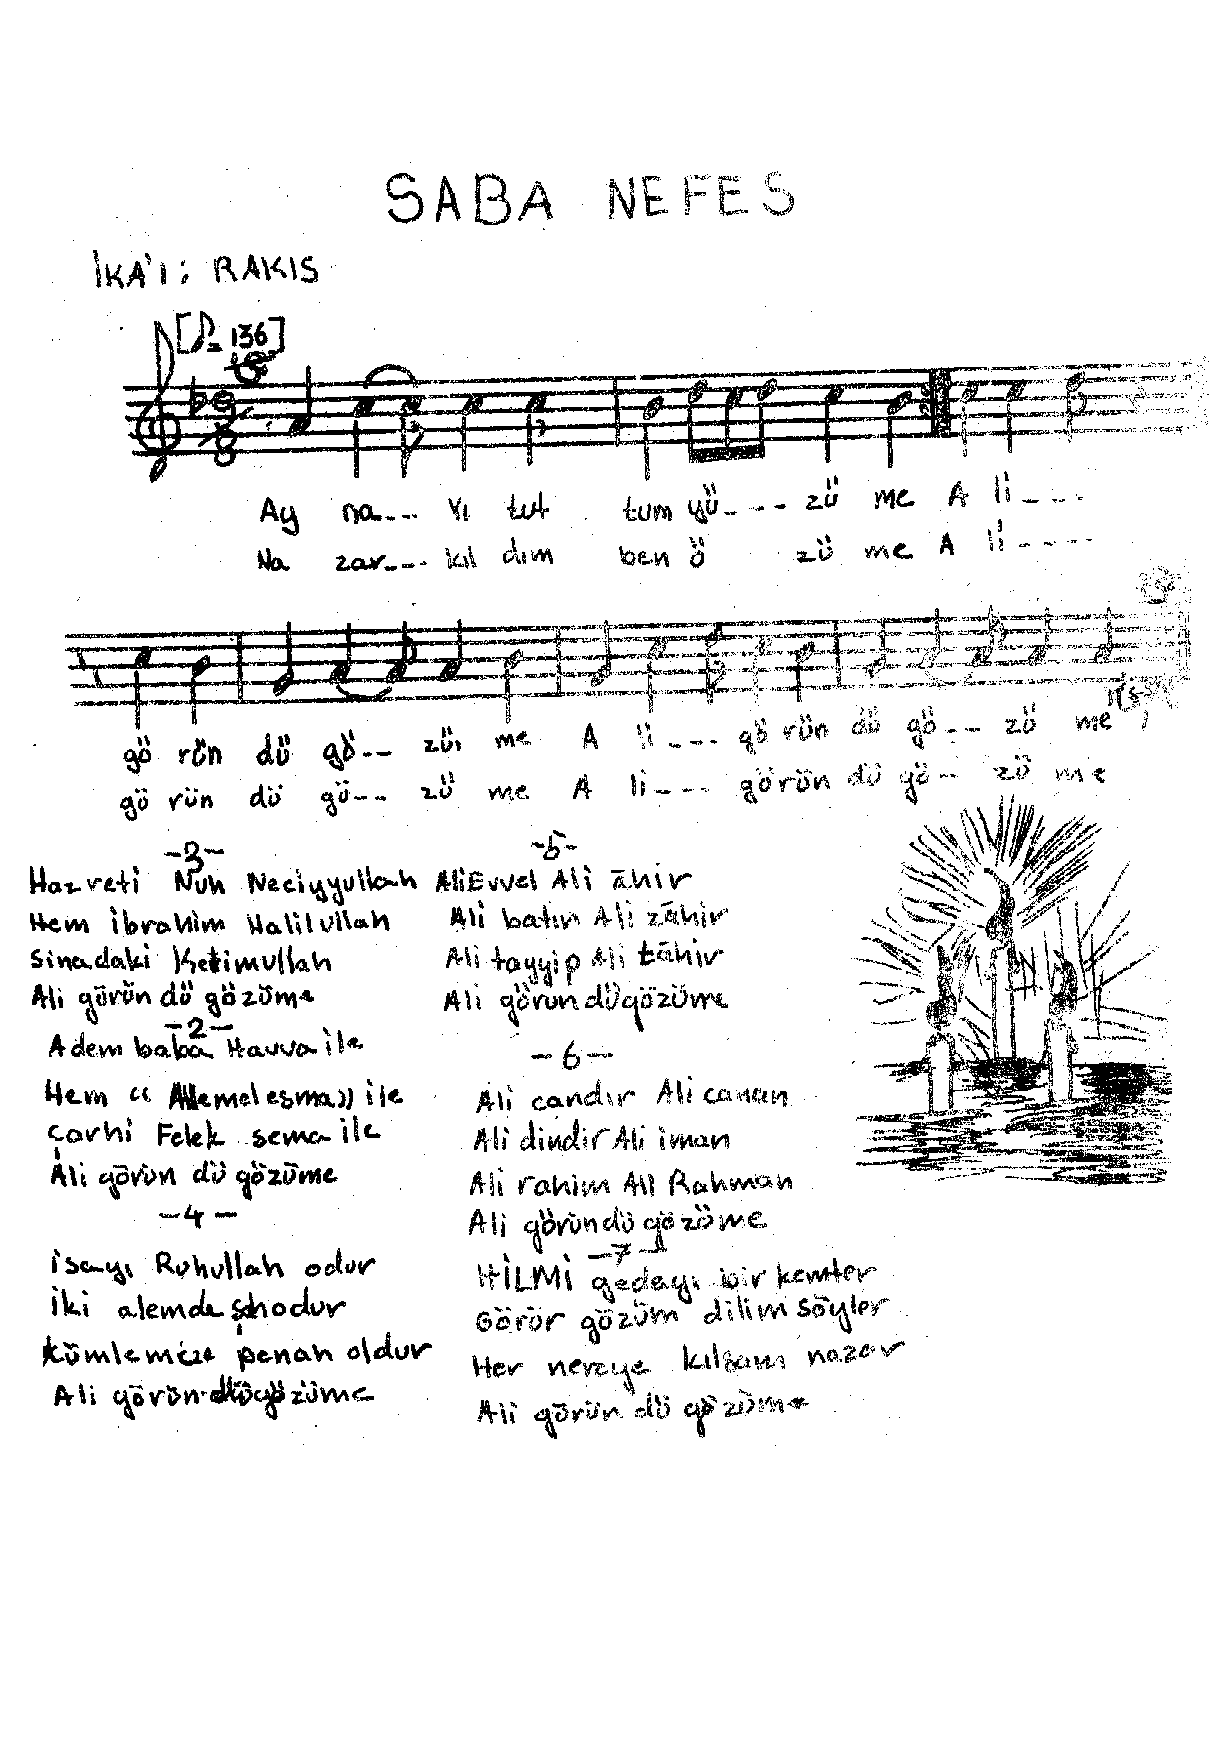 SABA NEFES
İKA'I: RAKIS
[♪=136]
Ay na--- yı tut tum yü---- zü me A li----
Na zar--- kıl dım ben ö zü me A li----
gö rün dü gö-- zü me A li---- gö rün dü gö-- zü me
gö rün dü gö-- zü me A li--- görün dü gö-- zü me
-3-
Hazreti Nuh Neciyyullah
Hem ibrahim Halilullah
Sinadaki Kelimullah
Ali göründü gözüme
-2-
Adem baba Havva ile
Hem « Allemelesma» ile
çarhi Felek sema ile
Ali görün dü gözüme
-4-
isayı Ruhullah odur
iki alemde şahodur
kümlemize penah oldur
Ali göründü gözüme
-5-
Ali Evvel Ali âhir
Ali batın Ali zâhir
Ali tayyip Ali tâhir
Ali göründü gözüme
-6-
Ali candır Ali canan
Ali dindir Ali iman
Ali rahim Ali Rahman
Ali göründü gözüme
-7-
HİLMİ gedayı bir kemter
Görür gözüm dilim söyler
Her nereye kılsam nazar
Ali görün dü gözüme